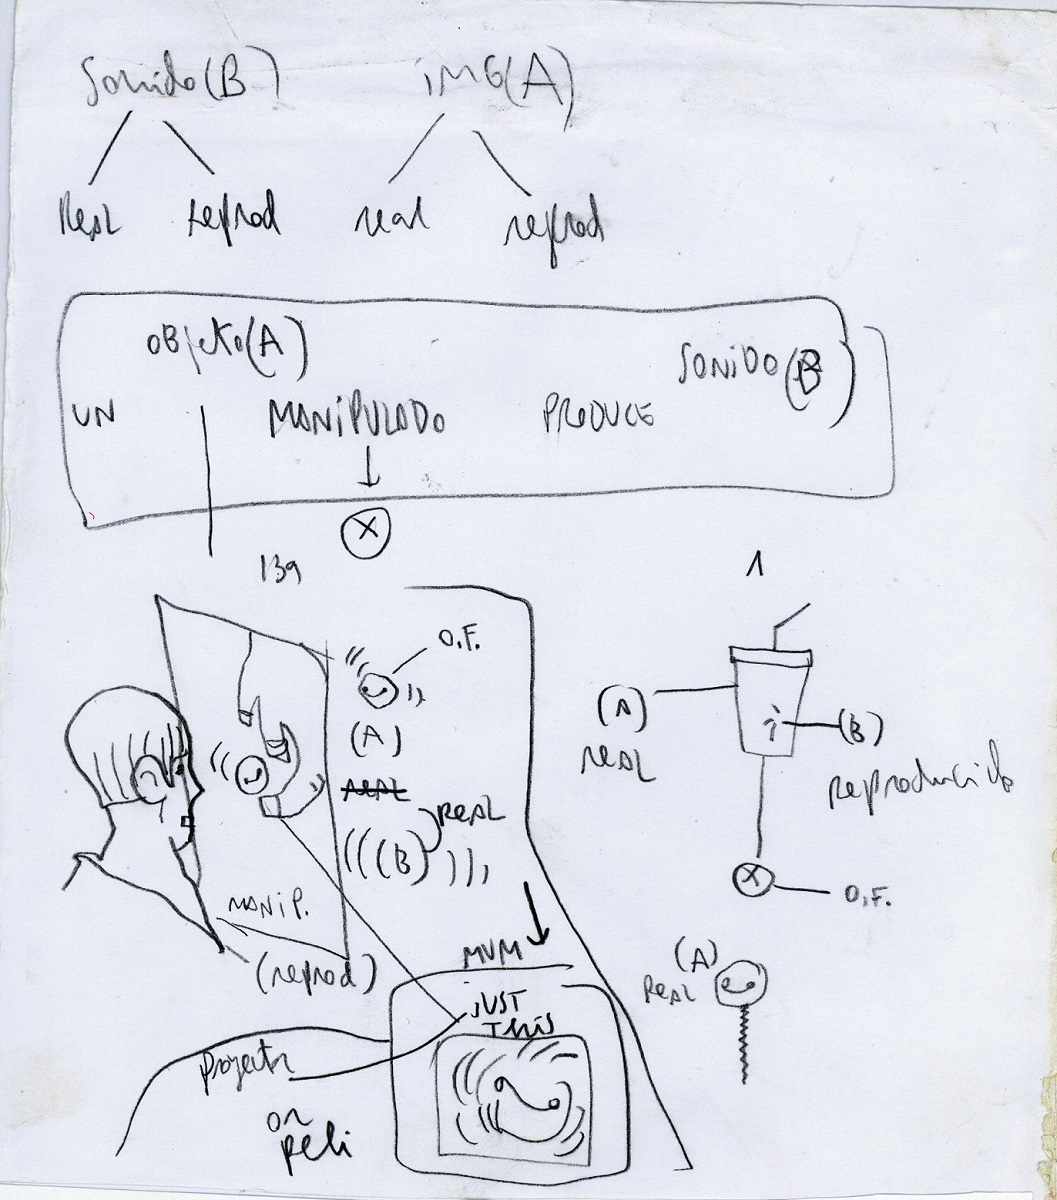 Sonido(B) iMG(A)
ReaL reprod real reprod
OBjeKto(A) SONiDO(B)
UN MANiPULADO PRODUCE
X
139 1
O.F.
(A)
(A)
reaL
reaL
(B)
reproducido
ReaL
(((B))))
MANiP.
X O.F.
(reprod)
MVM
(A)
ReaL
jUST
This
Projector
on
peli